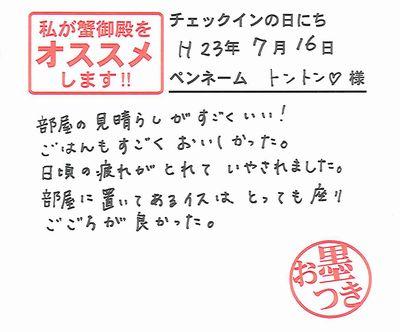 私が蟹御殿を
オススメ
します!!
チェックインの日にち
H 23年 7月 16日
ペンネーム トントン♡ 様
部屋の見晴らしがすごくいい!
ごはんもすごくおいしかった。
日頃の疲れがとれていやされました。
部屋に置いてあるイスはとっても座り
ごごろが良かった。
お墨つき